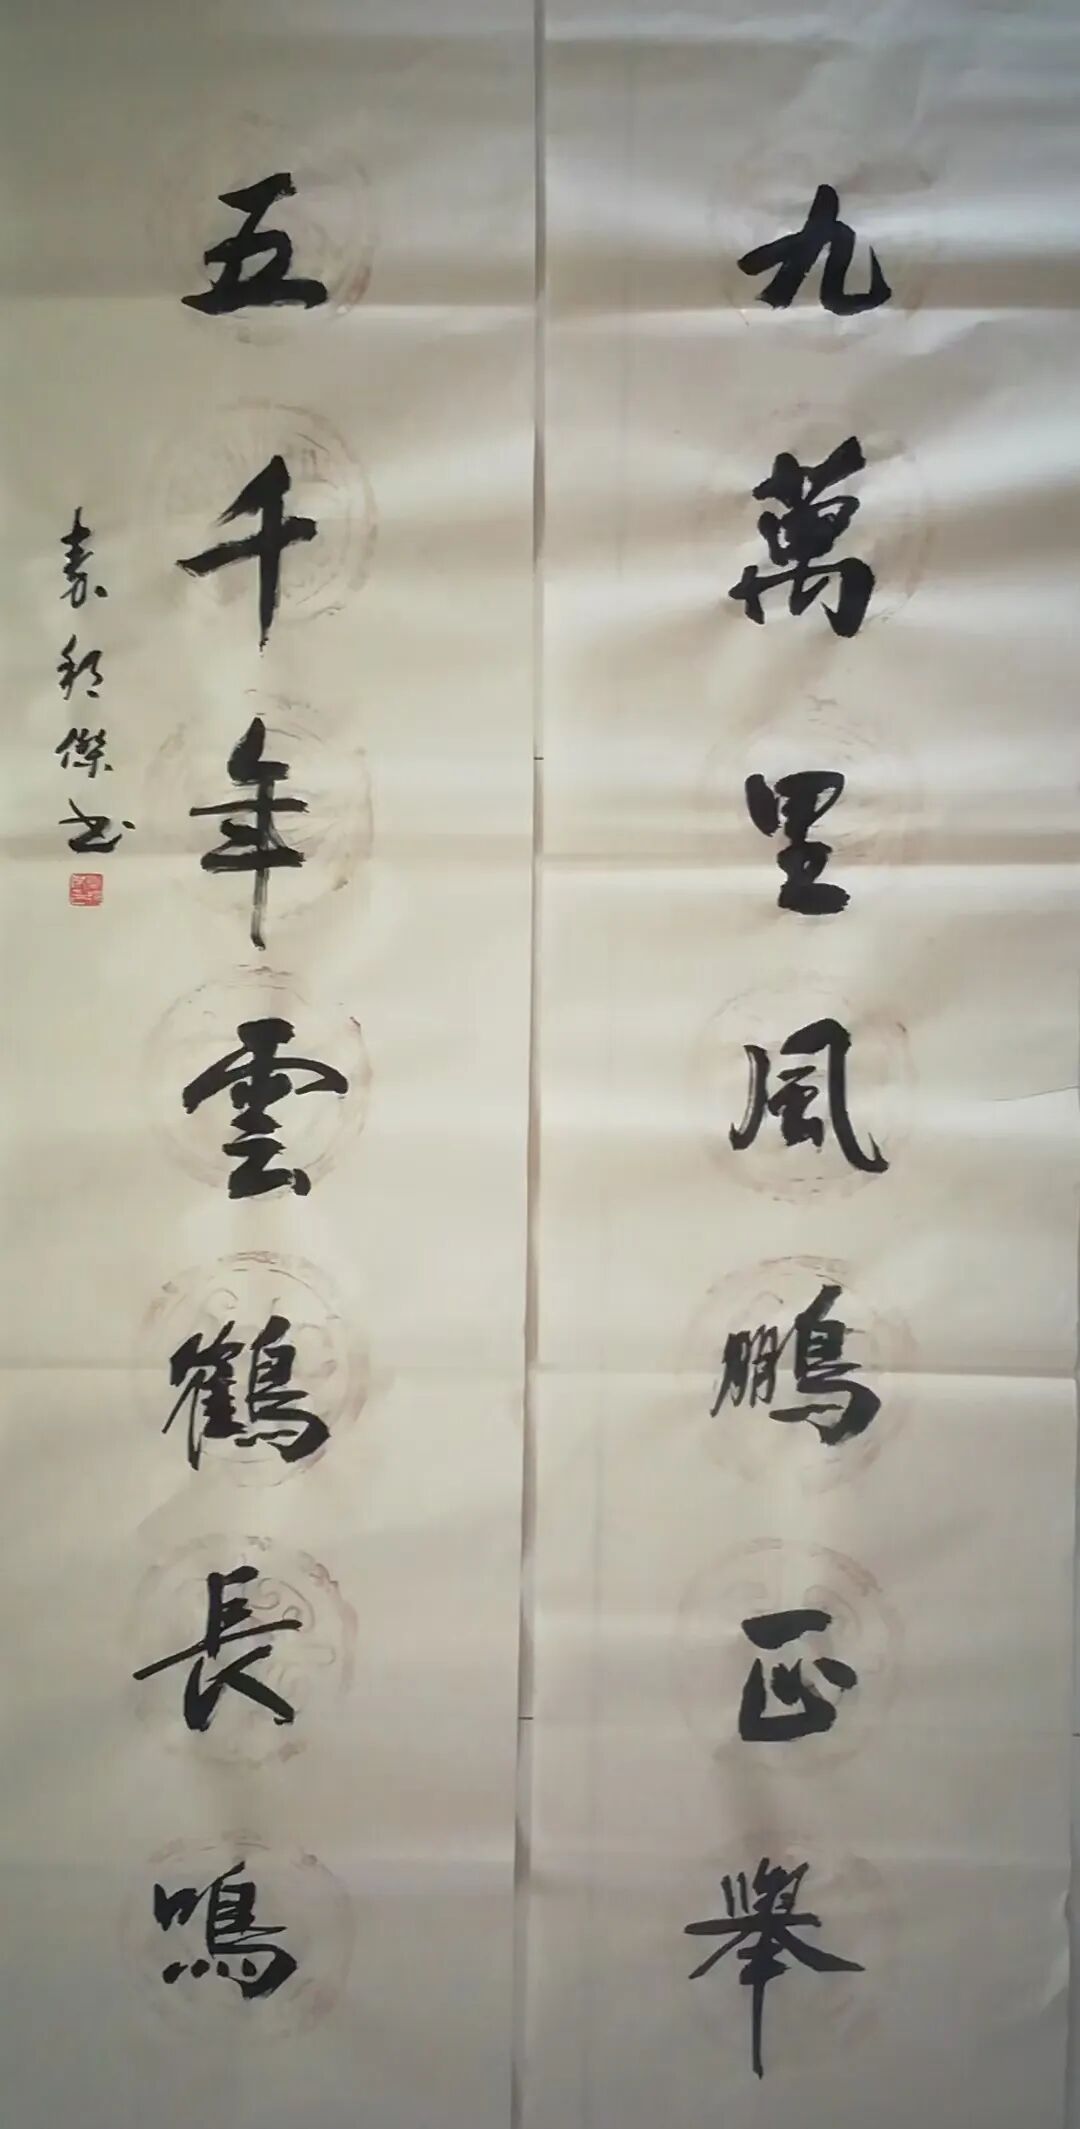 九萬里風鵬正舉
五千年雲鶴長鳴
袁邦傑书